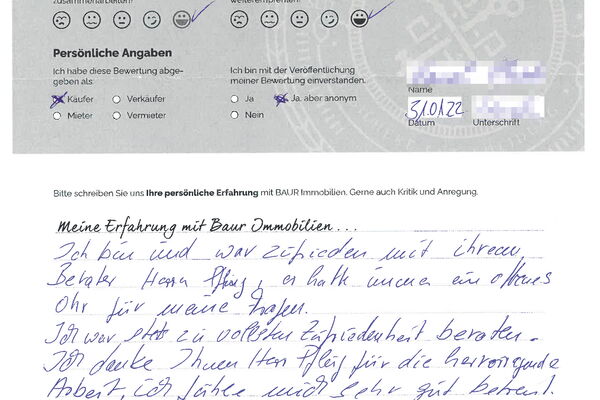 zusammenarbeiten? weiterempfehlen?
Persönliche Angaben
Ich habe diese Bewertung abge- Ich bin mit der Veröffentlichung
geben als: meiner Bewertung einverstanden.
Käufer Verkäufer Ja Ja, aber anonym
Mieter Vermieter Nein
Name
31.01.22
Datum Unterschrift
Bitte schreiben Sie uns Ihre persönliche Erfahrung mit BAUR Immobilien. Gerne auch Kritik und Anregung.
Meine Erfahrung mit Baur Immobilien...
Ich bin und war zufrieden mit ihrem
Berater Herrn Pflug, er hatte immer ein offenes
Ohr für meine Fragen.
Ich war stets zu vollsten Zufriedenheit beraten.
Ich danke Ihnen Herr Pflug für die hervorragende
Arbeit, ich fühle mich sehr gut betreut.